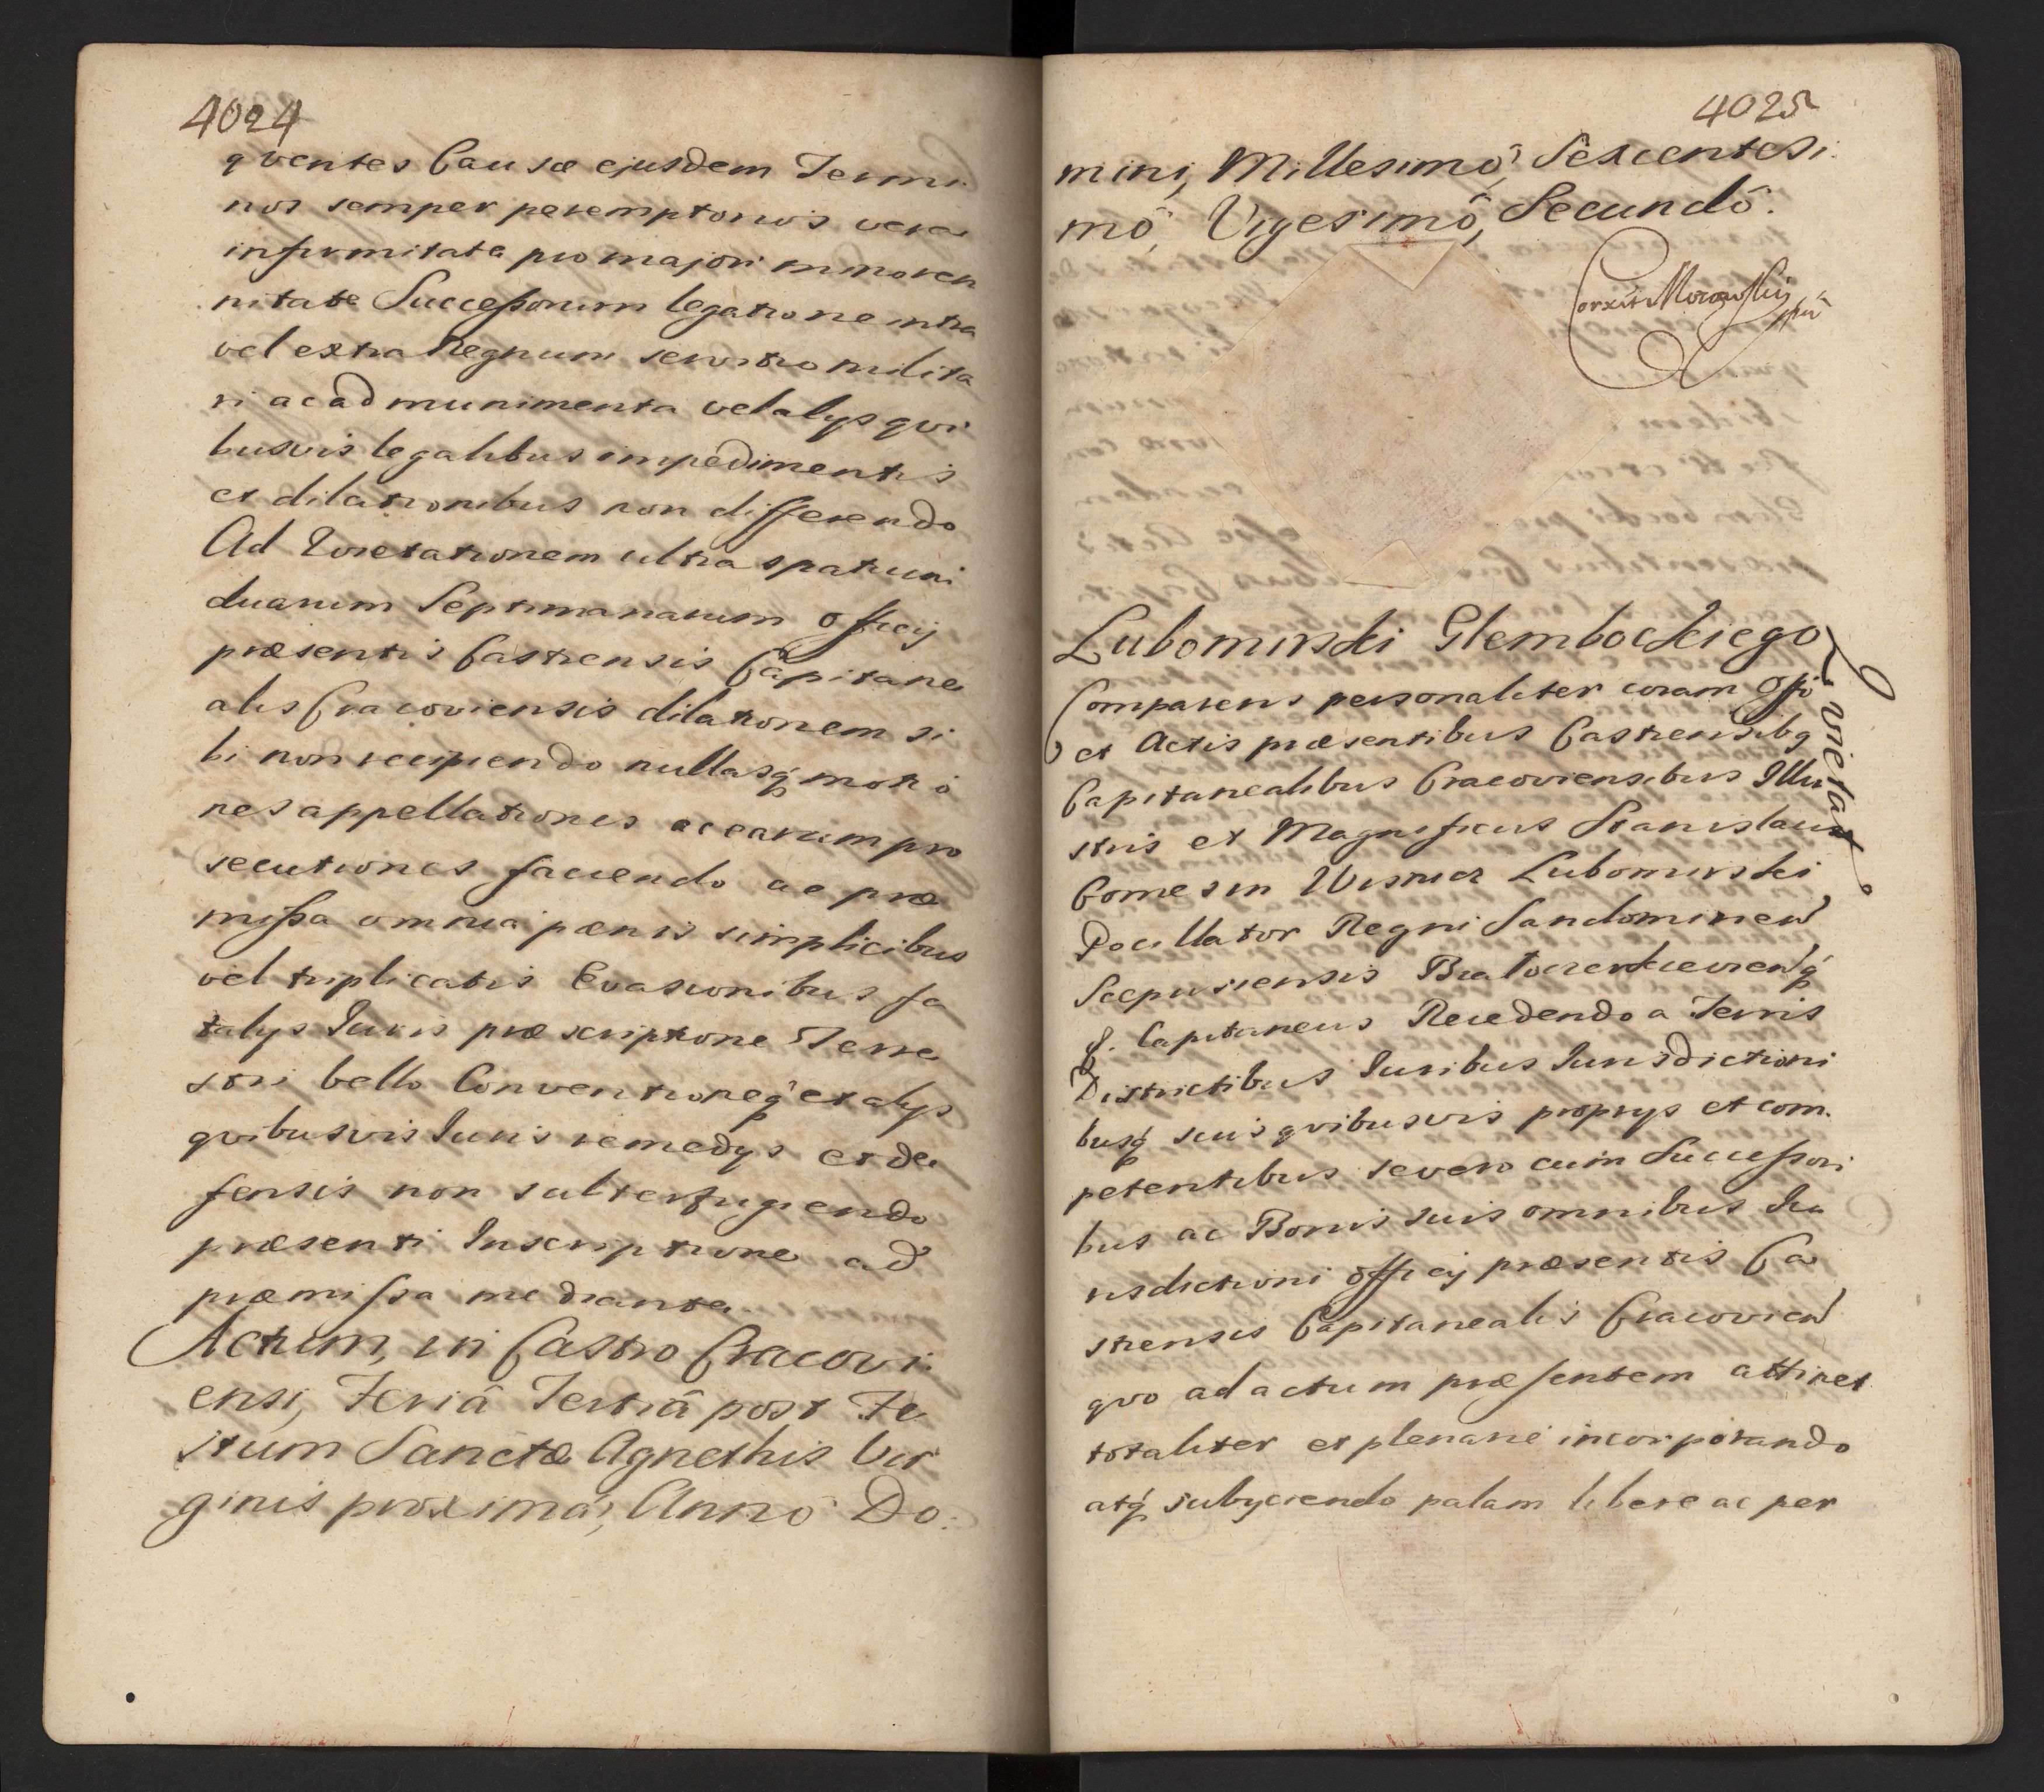 4024
qventes Causæ ejusdem Termi
nos semper peremptorios vera
infirmitate pro majori minoren
nitate Successorum legatione intra
vel extra Regnum servitio milita
ri ac ad munimenta vel alys qvi
busvis legalibus impedimentis
et dilationibus non differendo
Ad Qvietationem ultra spatium
duarum Septimanarum Officij
præsentis Castrensis Capitane
alis Cracoviensis dilationem si
bi non recipiendo nullasq́ motio
nes appellationes ac earum pro
secutiones faciendo ac præ
missa omnia pænis simplicibus
vel triplicatis Evasionibus fa
talys Iuris præscriptione Terre
stri bello Conventioneq́ et alys
qvibusvis Iuris remedys et de
fensis non subterfugiendo
præsenti Inscriptione ad
præmissa mediante.
Actum, in Castro Cracovi
ensi, Feriâ Tertiâ post Fe
stum Sanctæ Agnethis Vir
ginis proximâ, Annô Do:
4025
mini, Millesimô, Sexcentesi:
mô, Vigesimô, Secundô.
Corxit
Lubomirski Glembockiego
Qvietat
Comparens personaliter coram Offo
et Actis præsentibus Castrensibq
Capitanealibus Cracoviensibus Illu
stris et Magnificus Stanislaus
Comes in Wisnicz Lubomirski
Pocillator Regni Sandomirien
Scepusiensis Białocerkievienq́
&. Capitaneus Recedendo a Terris
Districtibus Iuribus Iurisdictioni
busq́ suis qvibusvis proprys et com.
petentibus se vero cum Successori
bus ac Bonis suis omnibus Iu
risdictioni Officij præsentis Ca
strensis Capitanealis Cracovien
qvo ad actum præsentem attinet
totaliter et plenarie incorporando
atq́ subyciendo palam libere ac per